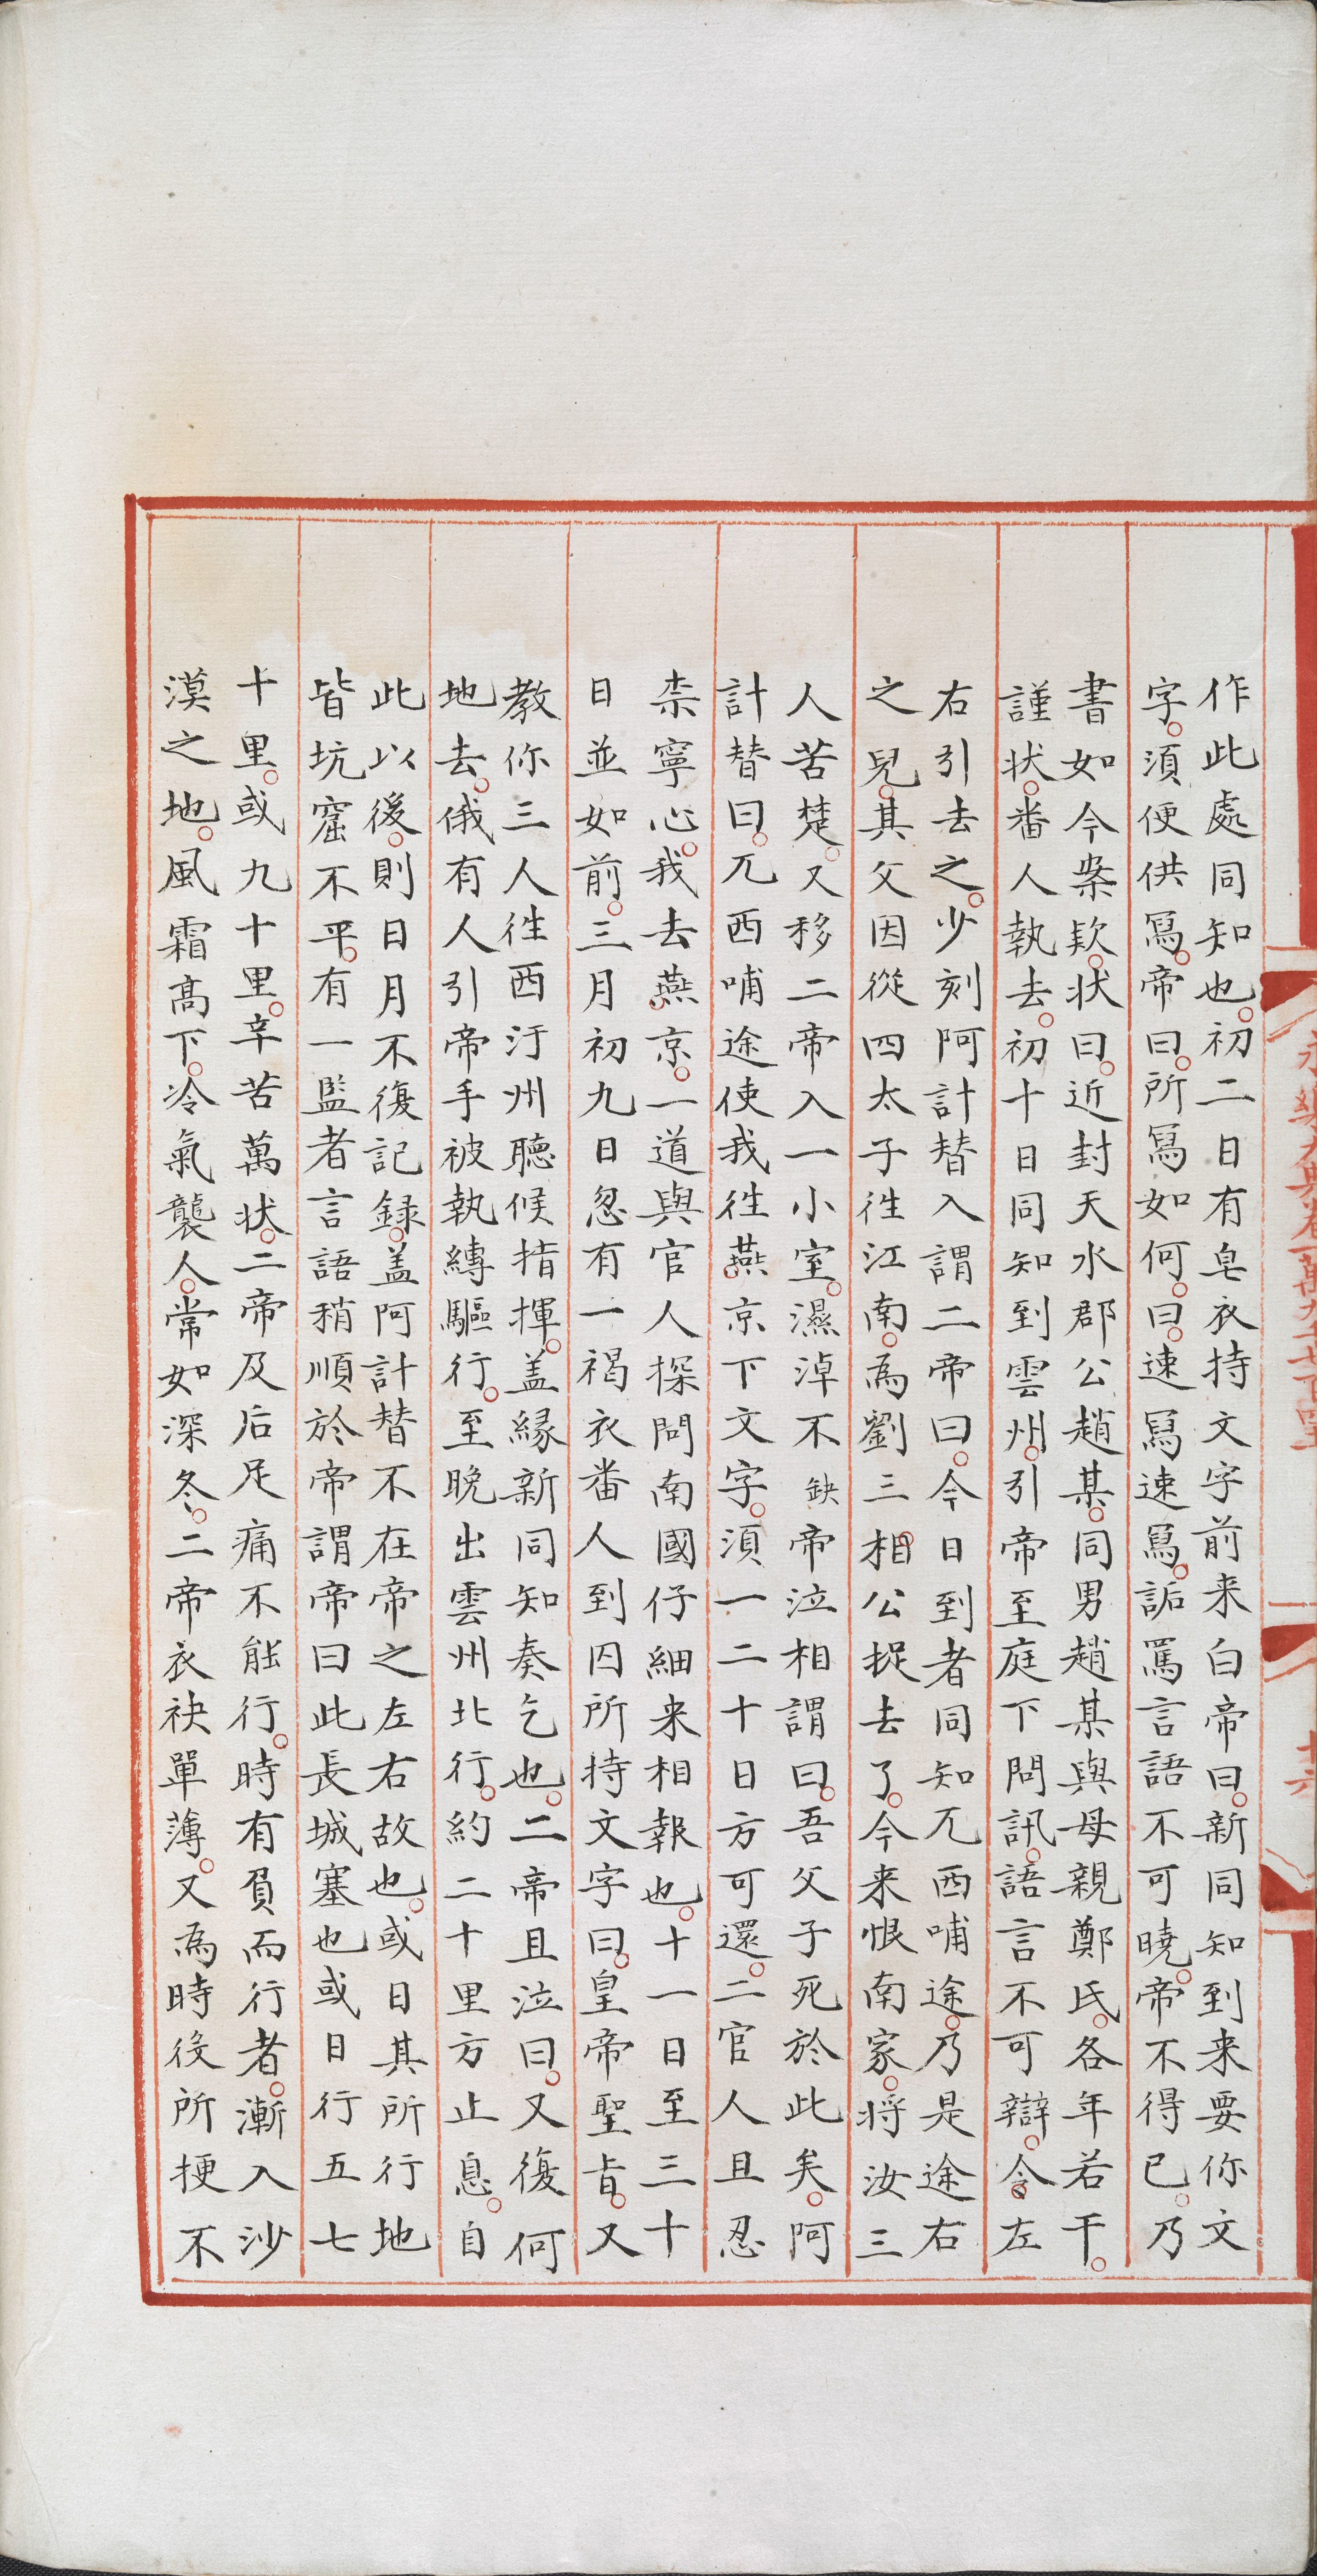 永樂大典卷一萬九千七百四十三
十六
作此處同知也初二日有皂衣持文字前来白帝曰新同知到来要你文
字須便供寫帝曰所寫如何曰速寫速寫詬罵言語不可曉帝不得已乃
書如今案欵状曰近封天水郡公趙某同男趙某與母親鄭氏各年若干
謹状番人執去初十日同知到雲州引帝至庭下問訊語言不可辯令左
右引去之少刻阿計替入謂二帝曰今日到者同知兀西哺途乃是途右
之兒其父因從四太子徃江南為劉三相公捉去了今来恨南家将汝三
人苦楚又移二帝入一小室濕淖不缺帝泣相謂曰吾父子死於此矣阿
計替曰兀西哺途使我徃燕京下文字須一二十日方可還二官人且忍
柰寧心我去燕京一道與官人探問南國仔細来相報也十一日至三十
日並如前三月初九日忽有一褐衣番人到囚所持文字曰皇帝聖㫖又
教你三人徃西汙州聽候指揮盖緣新同知奏乞也二帝且泣曰又復何
地去俄有人引帝手被執縛驅行至晚出雲州北行約二十里方止息自
此以後則日月不復記録盖阿計替不在帝之左右故也或日其所行地
皆坑窟不平有一監者言語稍順於帝謂帝曰此長城塞也或日行五七
十里或九十里辛苦萬状二帝及后足痛不能行時有負而行者漸入沙
漠之地風霜髙下冷氣襲人常如深冬二帝衣袂單薄又為時疫所梗不